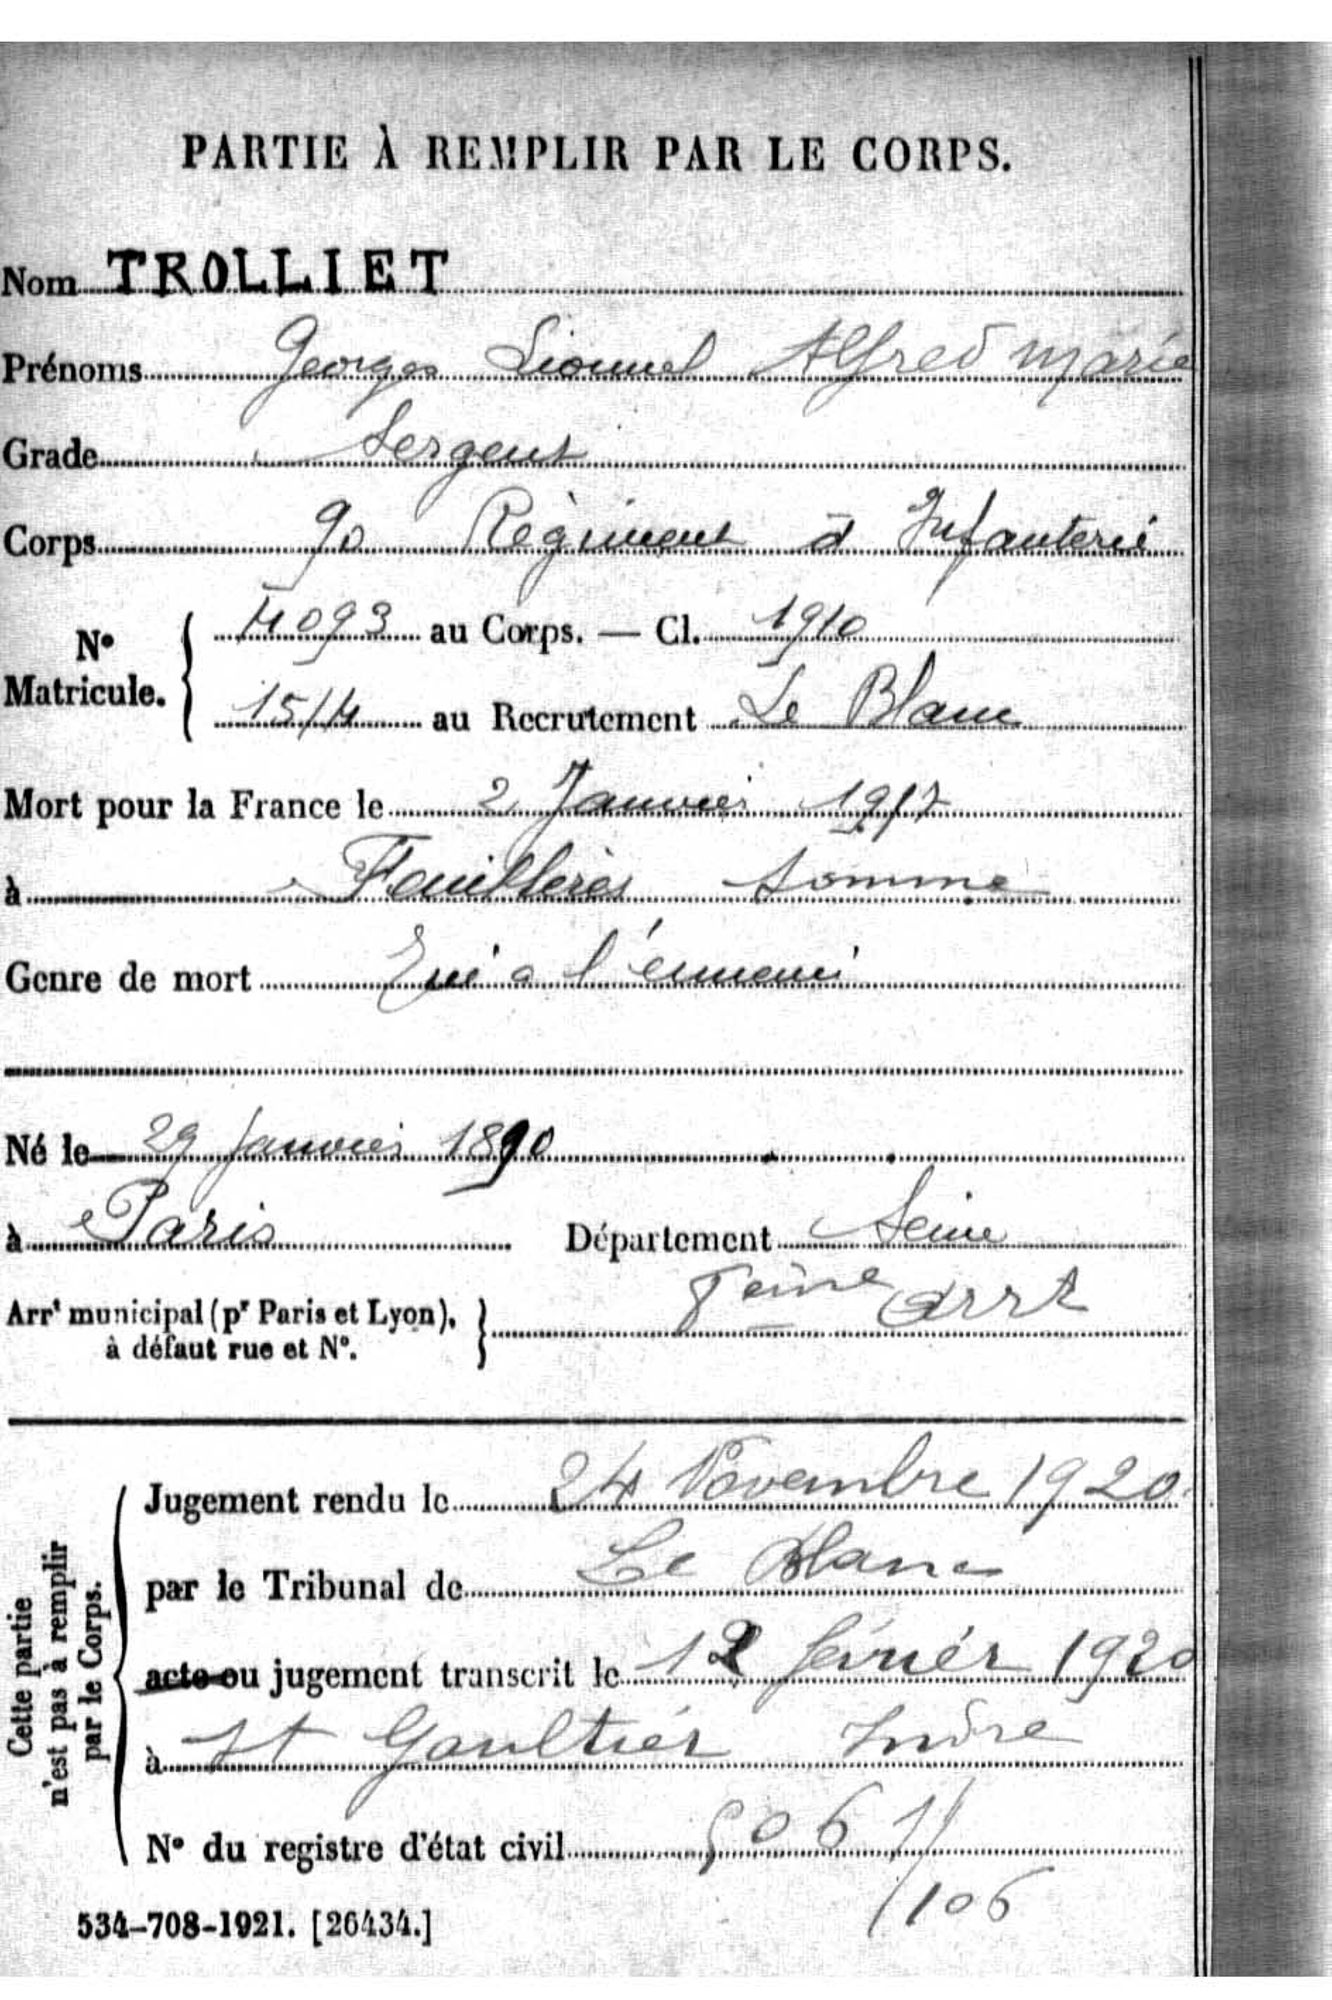 PARTIE À REMPLIR PAR LE CORPS.
Nom TROLLIET
Prénoms Georges Lionnel Alfred Marie
Grade Sergent
Corps 90 Régiment d Infanterie
N° Matricule. 4093 au Corps. — Cl. 1910
1514 au Recrutement Le Blanc
Mort pour la France le 2 Janvier 1917
à Feuillères Somme
Genre de mort Tué a l'ennemi
Né le 29 Janvier 1890
à Paris Département Seine
Arrt municipal (pr Paris et Lyon), à défaut rue et N°. eme arrt
Cette partie n'est pas à remplir par le Corps.
Jugement rendu le 24 Novembre 1920
par le Tribunal de Le Blanc
acte ou jugement transcrit le 12 février 1920
à St Gaultier Indre
N° du registre d'état civil 5061/
/106
534-708-1921. [26434.]